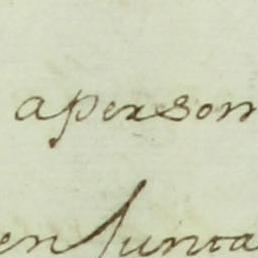 aperson
en Junta